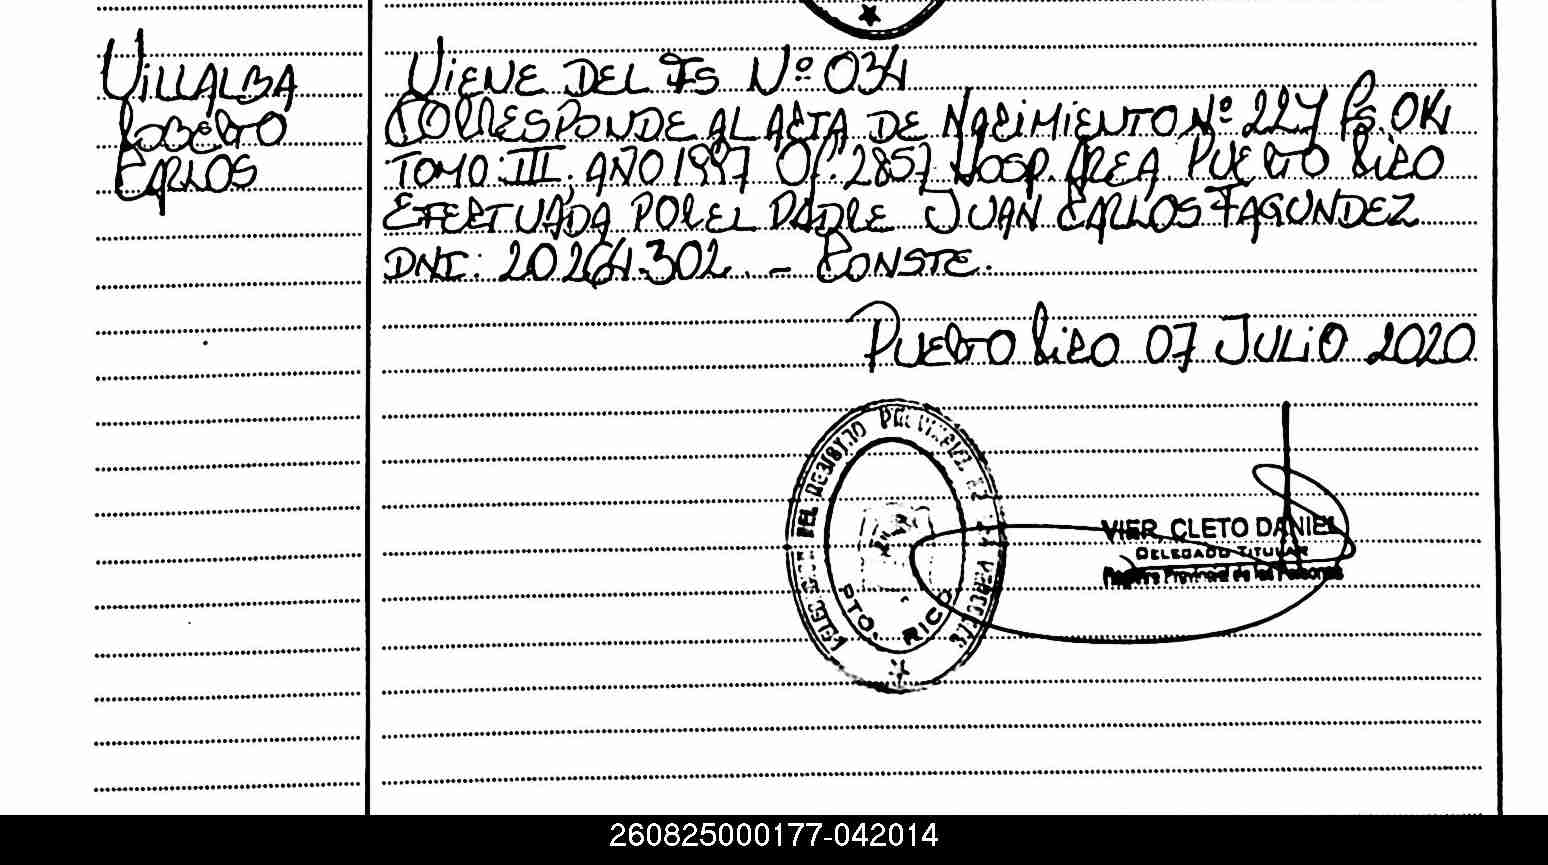 VILLALBA
ROBERTO
CARLOS
VIENE DEL FS Nº 034
CORRESPONDE AL ACTA DE NACIMIENTO Nº 227 Fs.
TOMO III, AÑO 1997 Of. 2857 HOSP. AREA PUERTO RICO
EFECTUADA POR EL PADRE JUAN CARLOS FAGUNDEZ
DNI: 20264.302. - CONSTE.
PUERTO RICO 07 JULIO 2020
PTO. RICO
VIER, CLETO DANIEL
DELEGADO TITULAR
Registro Provincial de las Personas
260825000177-042014